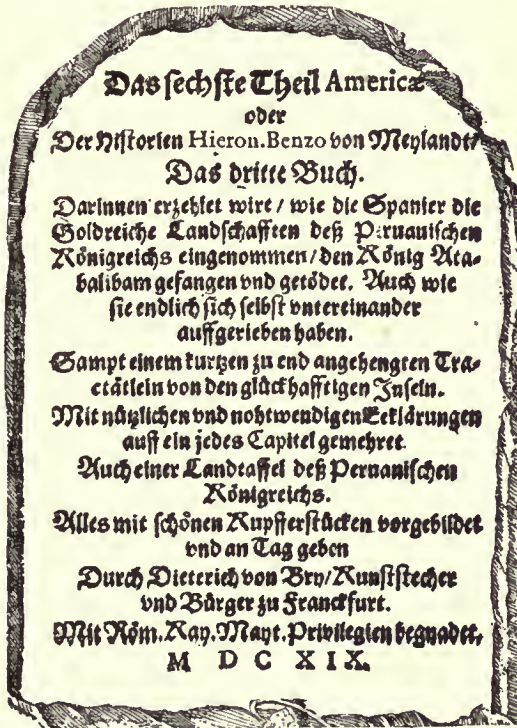 Das sechste Theil Americæ
oder
Der Historien Hieron. Benzo von Meylandt/
Das dritte Buch.
Darinnen erzehlet wirt / wie die Spanier die
Goldreiche Landschafften deß Peruanischen
Königreichs eingenommen / den König Ata-
balibam gefangen vnd getödet. Auch wie
sie endlich sich selbst vntereinander
auffgerieben haben.
Sampt einem kurtzen zu end angehengten Tra-
ctätlein von den glückhafftigen Inseln.
Mit nützlichen vnd nohtwendigen Erklärungen
auff ein jedes Capitel gemehret.
Auch einer Landtaffel deß Peruanischen
Königreichs.
Alles mit schönen Kupfferstücken vorgebildet
vnd an Tag geben
Durch Dieterich von Bry / Kunststecher
vnd Bürger zu Franckfurt.
Mit Röm. Kay. Mayt. Privilegien begnadet,
M D C XIX.